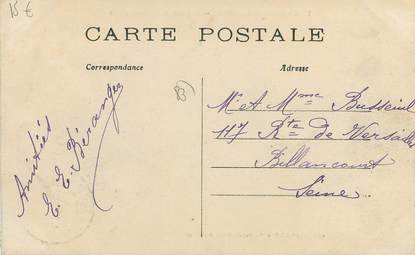 15 €
CARTE POSTALE
Correspondance
Adresse
Amitiés
E. E. Béranger
Mr & Mme Busseuil
117 Rte de Versailles
Billancourt
Seine